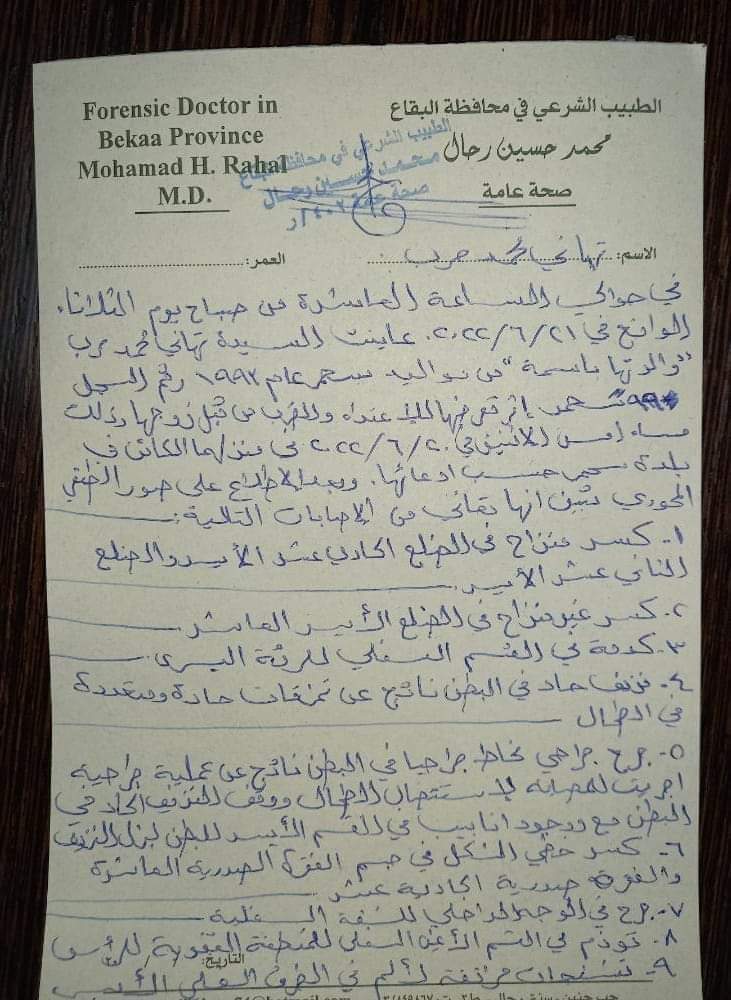 Forensic Doctor in
Bekaa Province
Mohamad H. Rahal
M.D.
الطبيب الشرعي في محافظة البقاع
محمد حسين رحال
صحة عامة
الطبيب الشرعي في محافظة البقاع
محمد حسين رحال
صحة عامة
الاسم: تهاني محمد حرب
العمر:
في حوالي الساعة العاشرة من صباح يوم الثلاثاء
الواقع في ٢٠٢٢/٦/٢١، عاينت السيدة تهاني محمد حرب
"والدتها باسمة" من مواليد عام ١٩٩٢ رقم السجل
إثر تعرضها للاعتداء والضرب من قبل زوجها وذلك
مساء امس الاثنين في ٢٠٢٢/٦/٢٠ في منزلهما الكائن في
بلدة حسب ادعائها. وبعد الاطلاع على صور الطبقي
المحوري تبين انها تعاني من الإصابات التالية:
١- كسر منزاح في الضلع الحادي عشر الأيسر والضلع
الثاني عشر الأيسر
٢- كسر غير منزاح في الضلع الأيسر العاشر
٣- كدمة في القسم السفلي للرئة اليسرى
٤- نزيف حاد في البطن ناتج عن تمزقات حادة ومتعددة
في الطحال
٥- جرح جراحي مخاط جراحيا في البطن ناتج عن عملية جراحية
اجريت للمصابة لاستئصال الطحال ووقف النزيف الحاد في
البطن مع ووجود انابيب في القسم الأيسر للبطن لبزل النزيف
٦- كسر خطي الشكل في جسم الفقرة الصدرية العاشرة
والفقرة صدرية الحادية عشر
٧- جرح في الوجه الداخلي للشفة السفلية
٨- تورّم في القسم الأيمن السفلي للمنطقة القفوية للرأس
التاريخ:
٩- تشنجات مرافقة لألم في الطرف السفلي الأيسر